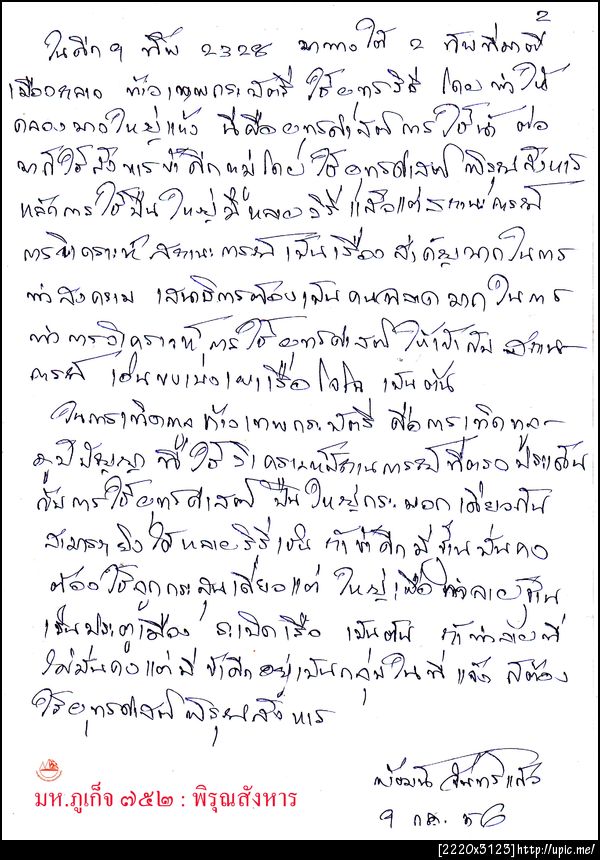 2
ในศึก ๙ ทัพ 2328 มาทางใต้ 2 ทัพที่มาตี
เมืองถลาง ท้าวเทพกระษัตรี ใช้ยุทธวิธี โดยทำให้
คลองบางใหญ่แห้ง นี่คือยุทธศาสตร์การใช้น้ำ ต่อ
มาก็ใช้สังหารข้าศึกหมู่โดยใช้ยุทธศาสตร์พิรุณสังหาร
หลักการใช้ปืนใหญ่มีหลายวิธี แล้วแต่สถานะการณ์
การวิเคราะห์สถานะการณ์เป็นเรื่องสำคัญมากในการ
ทำสงคราม เสนาธิการต้องเป็นคนฉลาดมากในการ
ทำการวิเคราะห์การใช้ยุทธศาสตร์ให้เข้ากับสถาน
การณ์ เช่น เผาเรือ เป็นต้น
ในการเทิดทูลท้าวเทพกระษัตรี คือการเทิดทูล
ภูมิปัญญา ที่ใช้วิเคราะห์สถานการณ์ที่ตรงประเด็น
กับการใช้ยุทธศาสตร์ ปืนใหญ่กระบอกเดียวกัน
สามารถยิงได้หลายวิธี เช่น ถ้าข้าศึกมีฐานมั่นคง
ต้องใช้ลูกกระสุนเดี่ยวแต่ใหญ่เพื่อทำลายฐาน
เช่นประตูเมือง ระเบิดเรือ เป็นต้น ถ้าทำลายที่
ไม่มั่นคงแต่มีข้าศึกอยู่เป็นกลุ่มในที่แจ้ง ก็ต้อง
ใช้ยุทธศาสตร์พิรุณสังหาร
จันทร์แก้ว
มห.ภูเก็จ ๗๕๒ : พิรุณสังหาร
๙ กค. ๕๖
[2220x3123]http://upic.me/